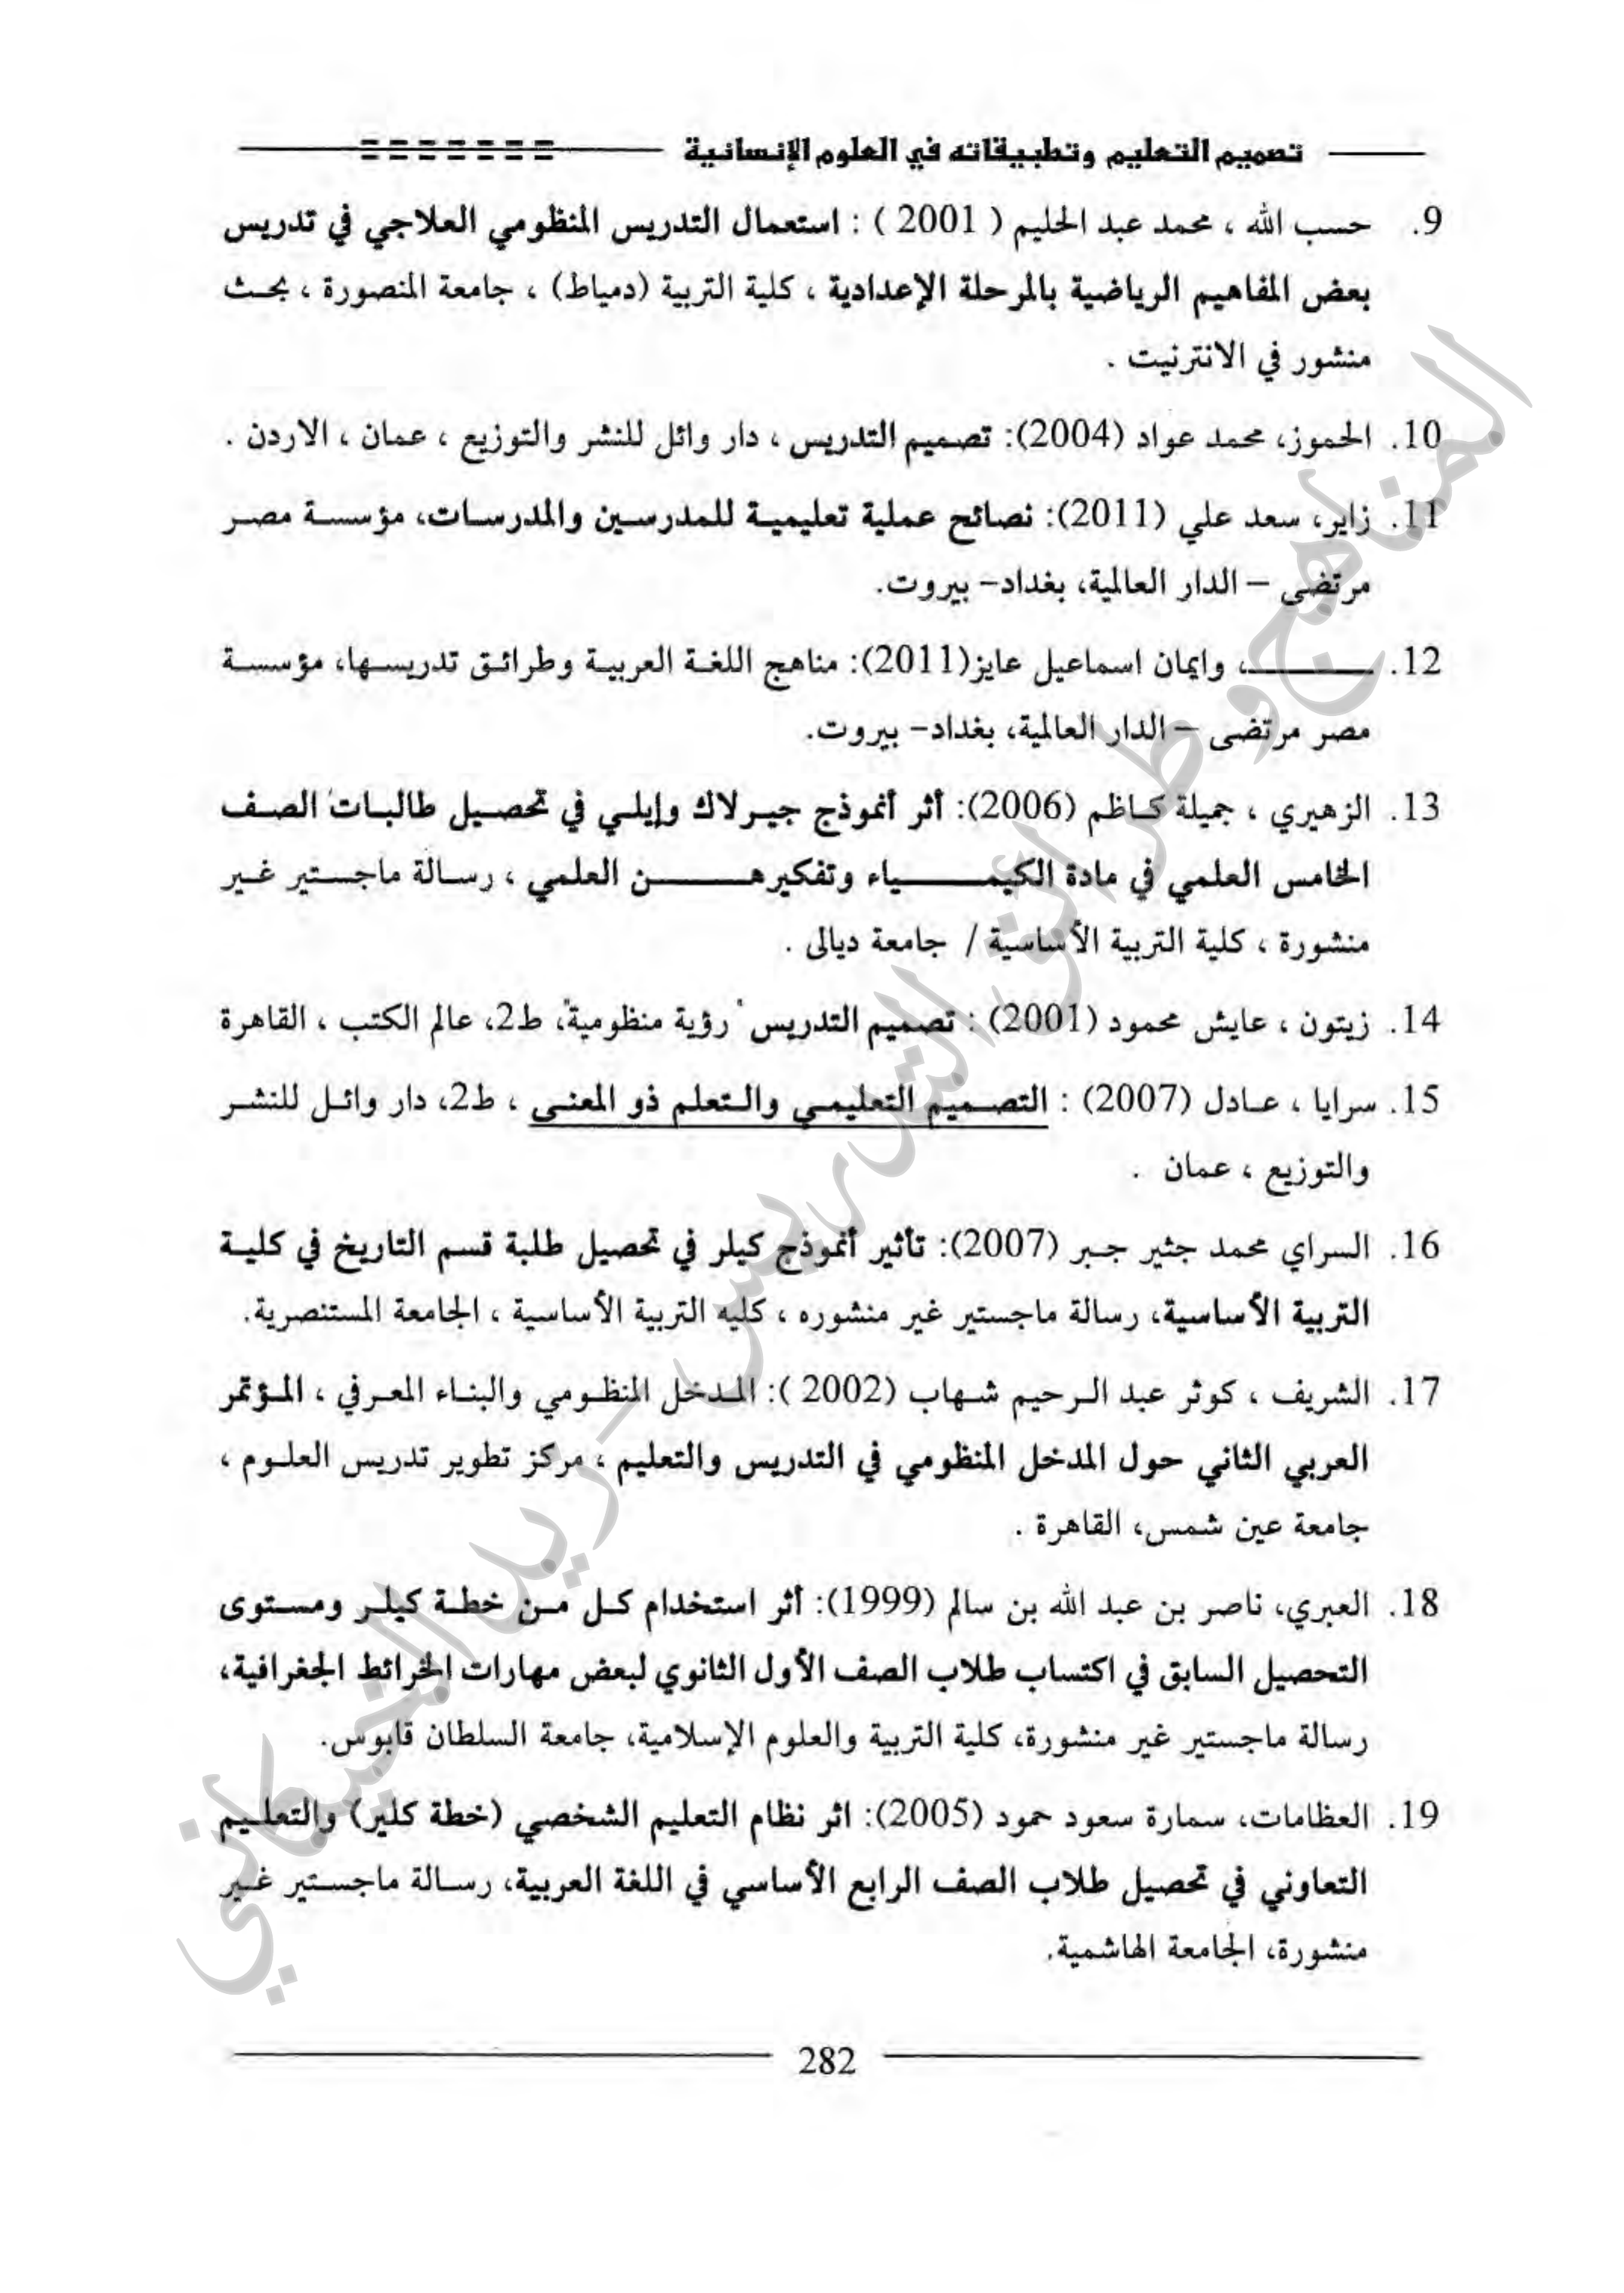 تصميم التعليم وتطبيقاته في العلوم الإنسانية
9. حسب الله ، محمد عبد الحليم ( 2001 ) : استعمال التدريس المنظومي العلاجي في تدريس
بعض المفاهيم الرياضية بالمرحلة الإعدادية ، كلية التربية (دمياط) ، جامعة المنصورة ، بحث
منشور في الانترنيت .
10. الحموز، محمد عواد (2004): تصميم التدريس ، دار وائل للنشر والتوزيع ، عمان ، الاردن .
11. زاير، سعد علي (2011): نصائح عملية تعليمية للمدرسين والمدرسات، مؤسسة مصر
مرتضى – الدار العالمية، بغداد– بيروت.
12. ـــــــــــ، وايمان اسماعيل عايز(2011): مناهج اللغة العربية وطرائق تدريسها، مؤسسة
مصر مرتضى – الدار العالمية، بغداد– بيروت.
13. الزهيري ، جميلة كاظم (2006): أثر أنموذج جيرلاك وإيلي في تحصيل طالبات الصف
الخامس العلمي في مادة الكيمياء وتفكيرهن العلمي ، رسالة ماجستير غير
منشورة ، كلية التربية الأساسية / جامعة ديالى .
14. زيتون ، عايش محمود (2001) : تصميم التدريس "رؤية منظومية"، ط2، عالم الكتب ، القاهرة
15. سرايا ، عادل (2007) : التصميم التعليمي والتعلم ذو المعنى ، ط2، دار وائل للنشر
والتوزيع ، عمان .
16. السراي محمد جثير جبر (2007): تأثير أنموذج كيلر في تحصيل طلبة قسم التاريخ في كلية
التربية الأساسية، رسالة ماجستير غير منشوره ، كليه التربية الأساسية ، الجامعة المستنصرية.
17. الشريف ، كوثر عبد الرحيم شهاب (2002 ): المدخل المنظومي والبناء المعرفي ، المؤتمر
العربي الثاني حول المدخل المنظومي في التدريس والتعليم ، مركز تطوير تدريس العلوم ،
جامعة عين شمس، القاهرة .
18. العبري، ناصر بن عبد الله بن سالم (1999): أثر استخدام كل من خطة كيلر ومستوى
التحصيل السابق في اكتساب طلاب الصف الأول الثانوي لبعض مهارات الخرائط الجغرافية،
رسالة ماجستير غير منشورة، كلية التربية والعلوم الإسلامية، جامعة السلطان قابوس.
19. العظامات، سمارة سعود حمود (2005): اثر نظام التعليم الشخصي (خطة كلير) والتعليم
التعاوني في تحصيل طلاب الصف الرابع الأساسي في اللغة العربية، رسالة ماجستير غير
منشورة، الجامعة الهاشمية.
282
المناهج وطرائق التدريس - ريد الخيكاني